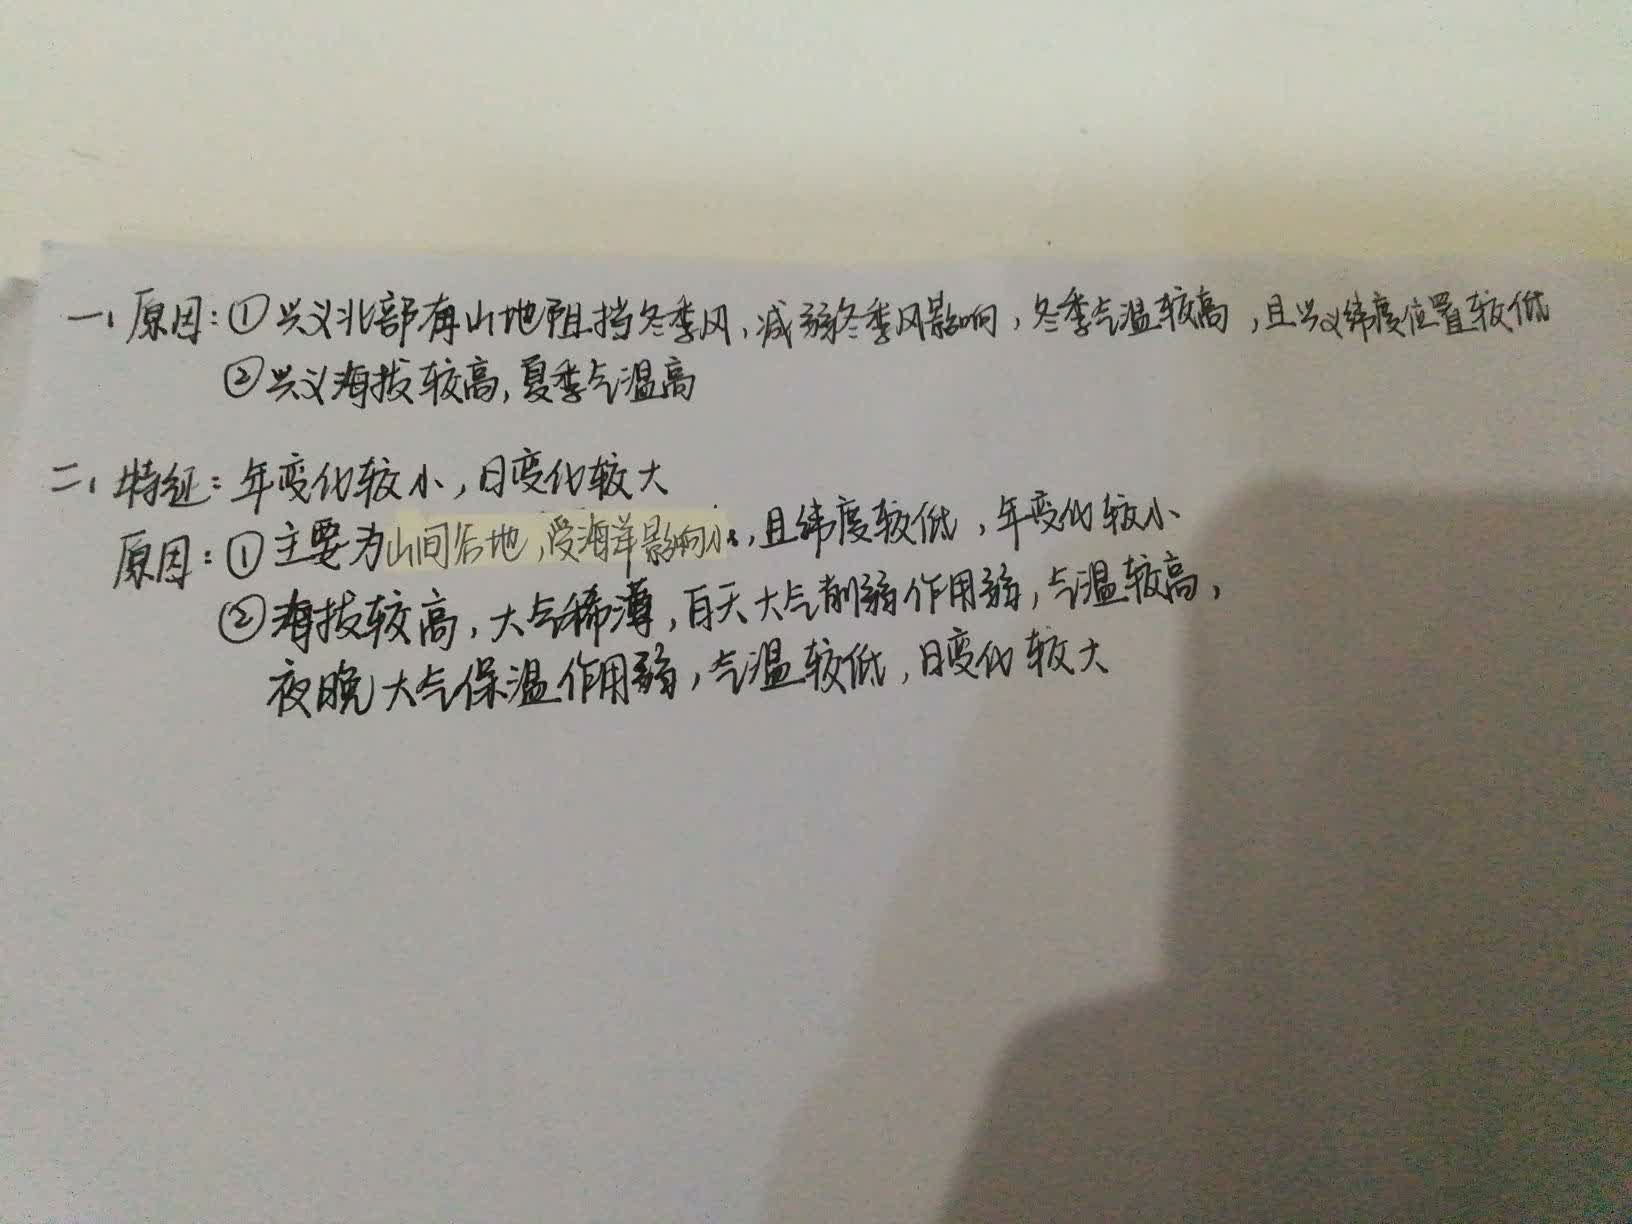 一、原因：①兴义北部有山地阻挡冬季风，减弱冬季风影响，冬季气温较高，且兴义纬度位置较低
②兴义海拔较高，夏季气温高
二、特征：年变化较小，日变化较大
原因：①主要为山间谷地，受海洋影响小，且纬度较低，年变化较小
②海拔较高，大气稀薄，白天大气削弱作用弱，气温较高，
夜晚大气保温作用弱，气温较低，日变化较大